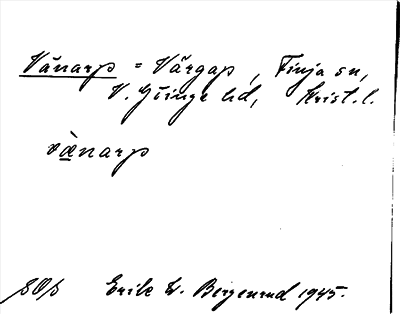 Vänarp = Vårgap, Finja sn,
V. Göinge hd, Krist. l.
væ̀narp
Erik W. Bergenrud 1945.